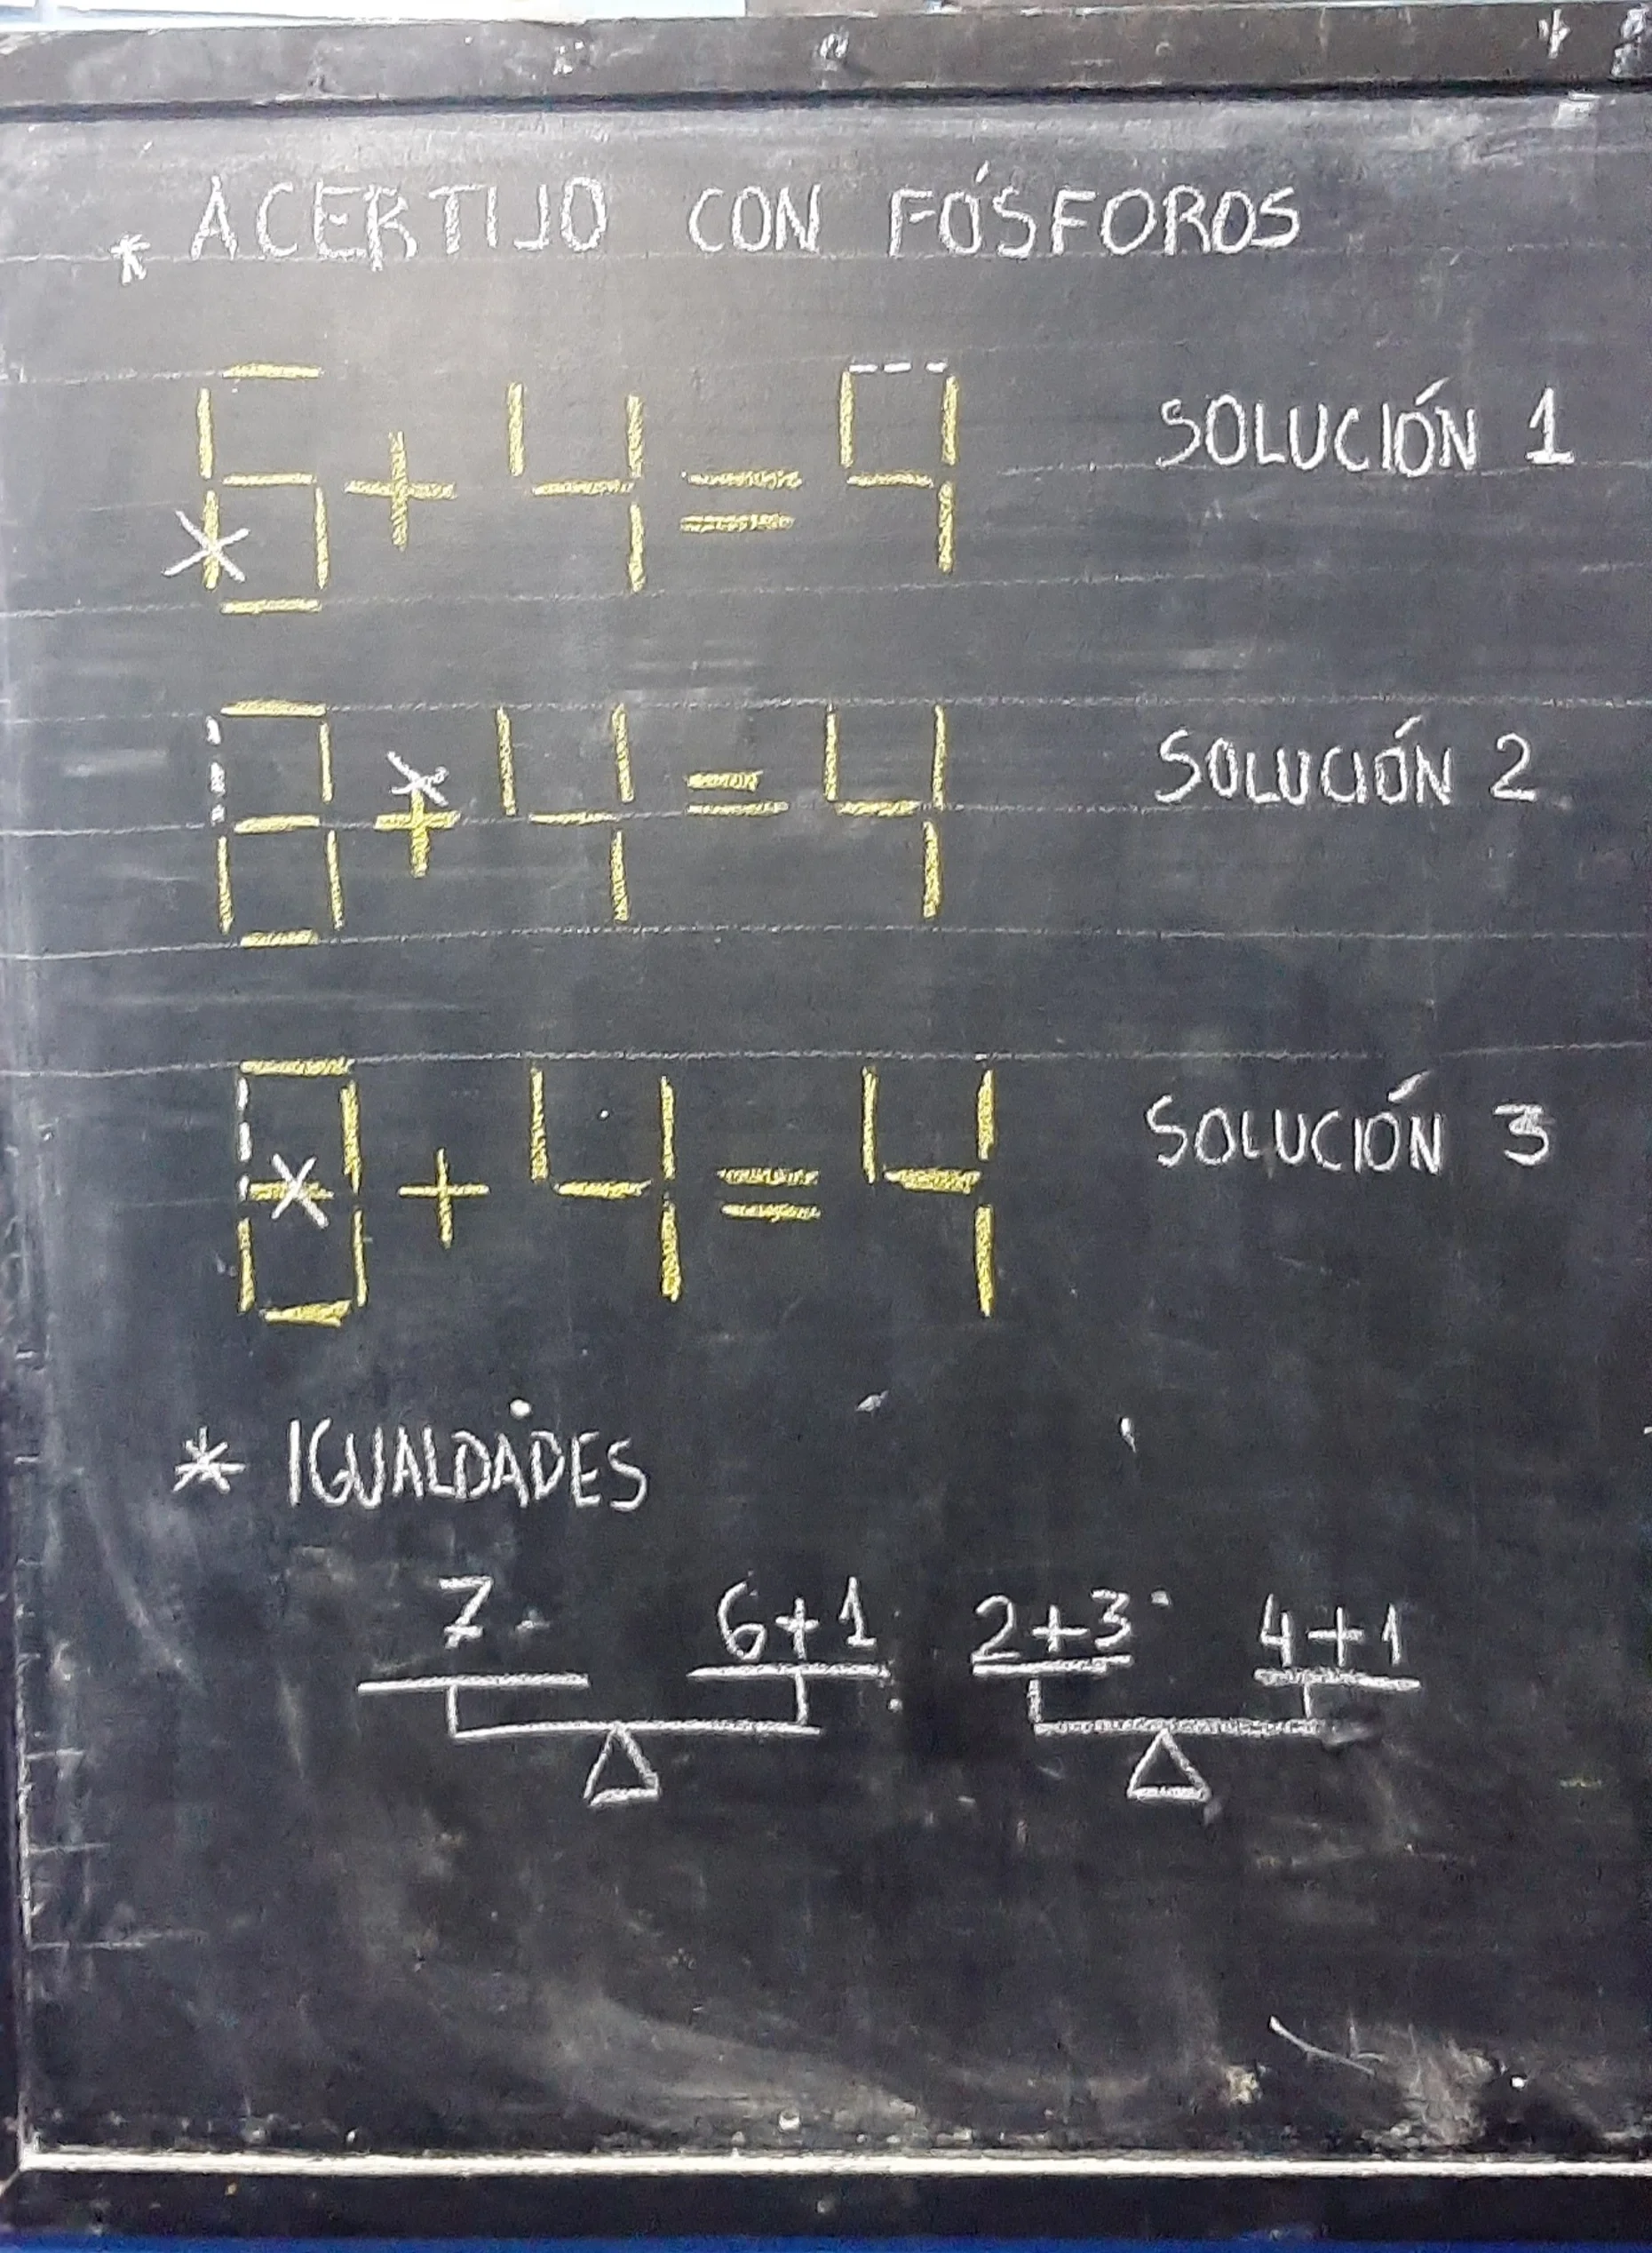 * ACERTIJO CON FÓSFOROS
6 + 4 = 9 SOLUCIÓN 1
8 + 4 = 4 SOLUCIÓN 2
8 + 4 = 4 SOLUCIÓN 3
* IGUALDADES
7 6+1 2+3 4+1